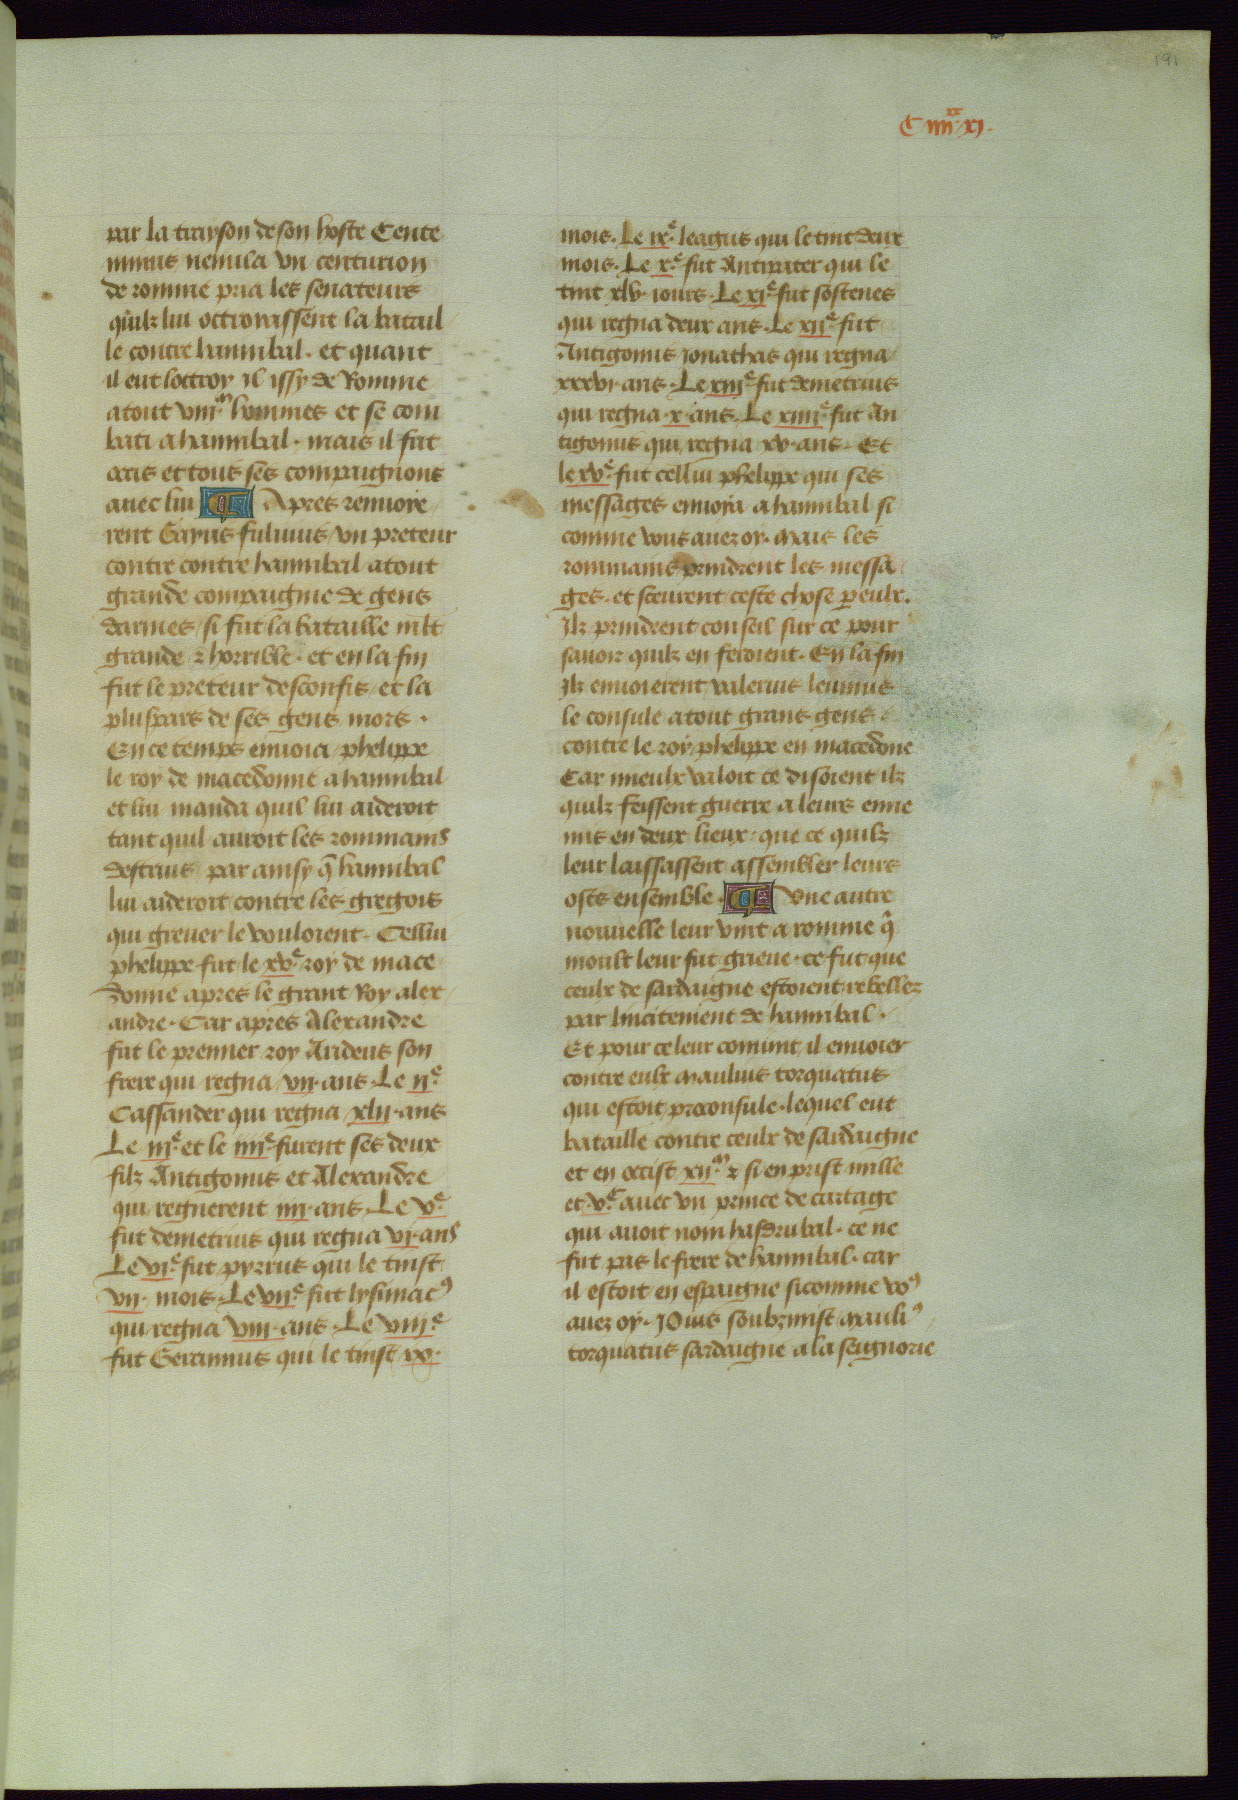 191
C iiii.xx xi.
par la trayson de son hoste Cente
nimus nemila vn centurion
de romme pria les senateurs
quilz lui octroyassent la batail
le contre hannibal. et quant
il eut loctroy Il issy de Romme
atout viii.m hommes et se com
bati a hannibal. mais il fut
occis et tous ses compaignons
auec lui ¶ Apres renuoye
rent Gayus fuluius vn preteur
contre contre hannibal atout
grande compaignie de gens
darmes / si fut la bataille mlt
grande & horrible. et en la fin
fut le preteur desconfis et la
pluspars de ses gens mors.
En ce temps enuoia phelippe
le roy de macedonne a hannibal
et lui manda quil lui aideroit
tant quil auroit les rommains
destruis par ainsy q̄ hannibal
lui aideroit contre les gregois
qui greuer le vouloient. Cellui
phelippe fut le xv.e roy de mace
donne apres le grant Roy alex
andre. Car apres Alexandre
fut le premier roy Arideus son
frere qui regna vii. ans. Le ii.e
Cassander qui regna xlii ans
Le iii.e et le iiii.e furent ses deux
filz Antigonus et Alexandre
qui regnerent iiii. ans. Le v.e
fut demetrius qui regna vi. ans
Le vi.e fut pyrrus qui le tinst
vii. mois. Le vii.e fut lysimacꝰ
qui regna viii. ans. Le viii.e
fut Geraunus qui le tinst xv.
mois. Le ix.e leagus qui le tint deux
mois. Le x.e fut Antipater qui le
tint xlv. iours. Le xi.e fut sostenes
qui regna deux ans. Le xii.e fut
Antigonus Jonathas qui regna
xxxvi. ans. Le xiii.e fut demetrius
qui regna .x. ans. Le xiiii.e fut An
tigonus qui regna xv. ans. Et
le xv.e fut cellui phelippe qui ses
messages enuoya a hannibal si
comme vous auez oy. Mais les
rommains prindrent les messa
ges. et sceurent ceste chose p eulx.
Ilz prindrent conseil sur ce pour
sauoir quilz en feroient. En la fin
Ilz enuoierent valerius leuinus
le consule atout grans gens
contre le roy phelippe en macedone
Car mieulx valoit ce disoient ilz
quilz feissent guerre a leurs enne
mis en deux lieux. que ce quilz
leur laissassent assembler leurs
osts ensemble. ¶ Vne autre
nouuelle leur vint a romme q̄
moult leur fut grieue. ce fut que
ceulx de sardaigne estoient rebellez
par lincitement de hannibal.
Et pour ce leur conuint il enuoier
contre eulx Maulius torquatus
qui estoit proconsule. lequel eut
bataille contre ceulx de sardaigne
et en occist xii.m & si en prist mille
et v.c auec vn prince de cartage
qui auoit nom hasdrubal. ce ne
fut pas le frere de hannibal. car
il estoit en espaigne sicomme voꝰ
auez oy. Puis soubzmist mauliꝰ
torquatus sardaigne a la seignorie